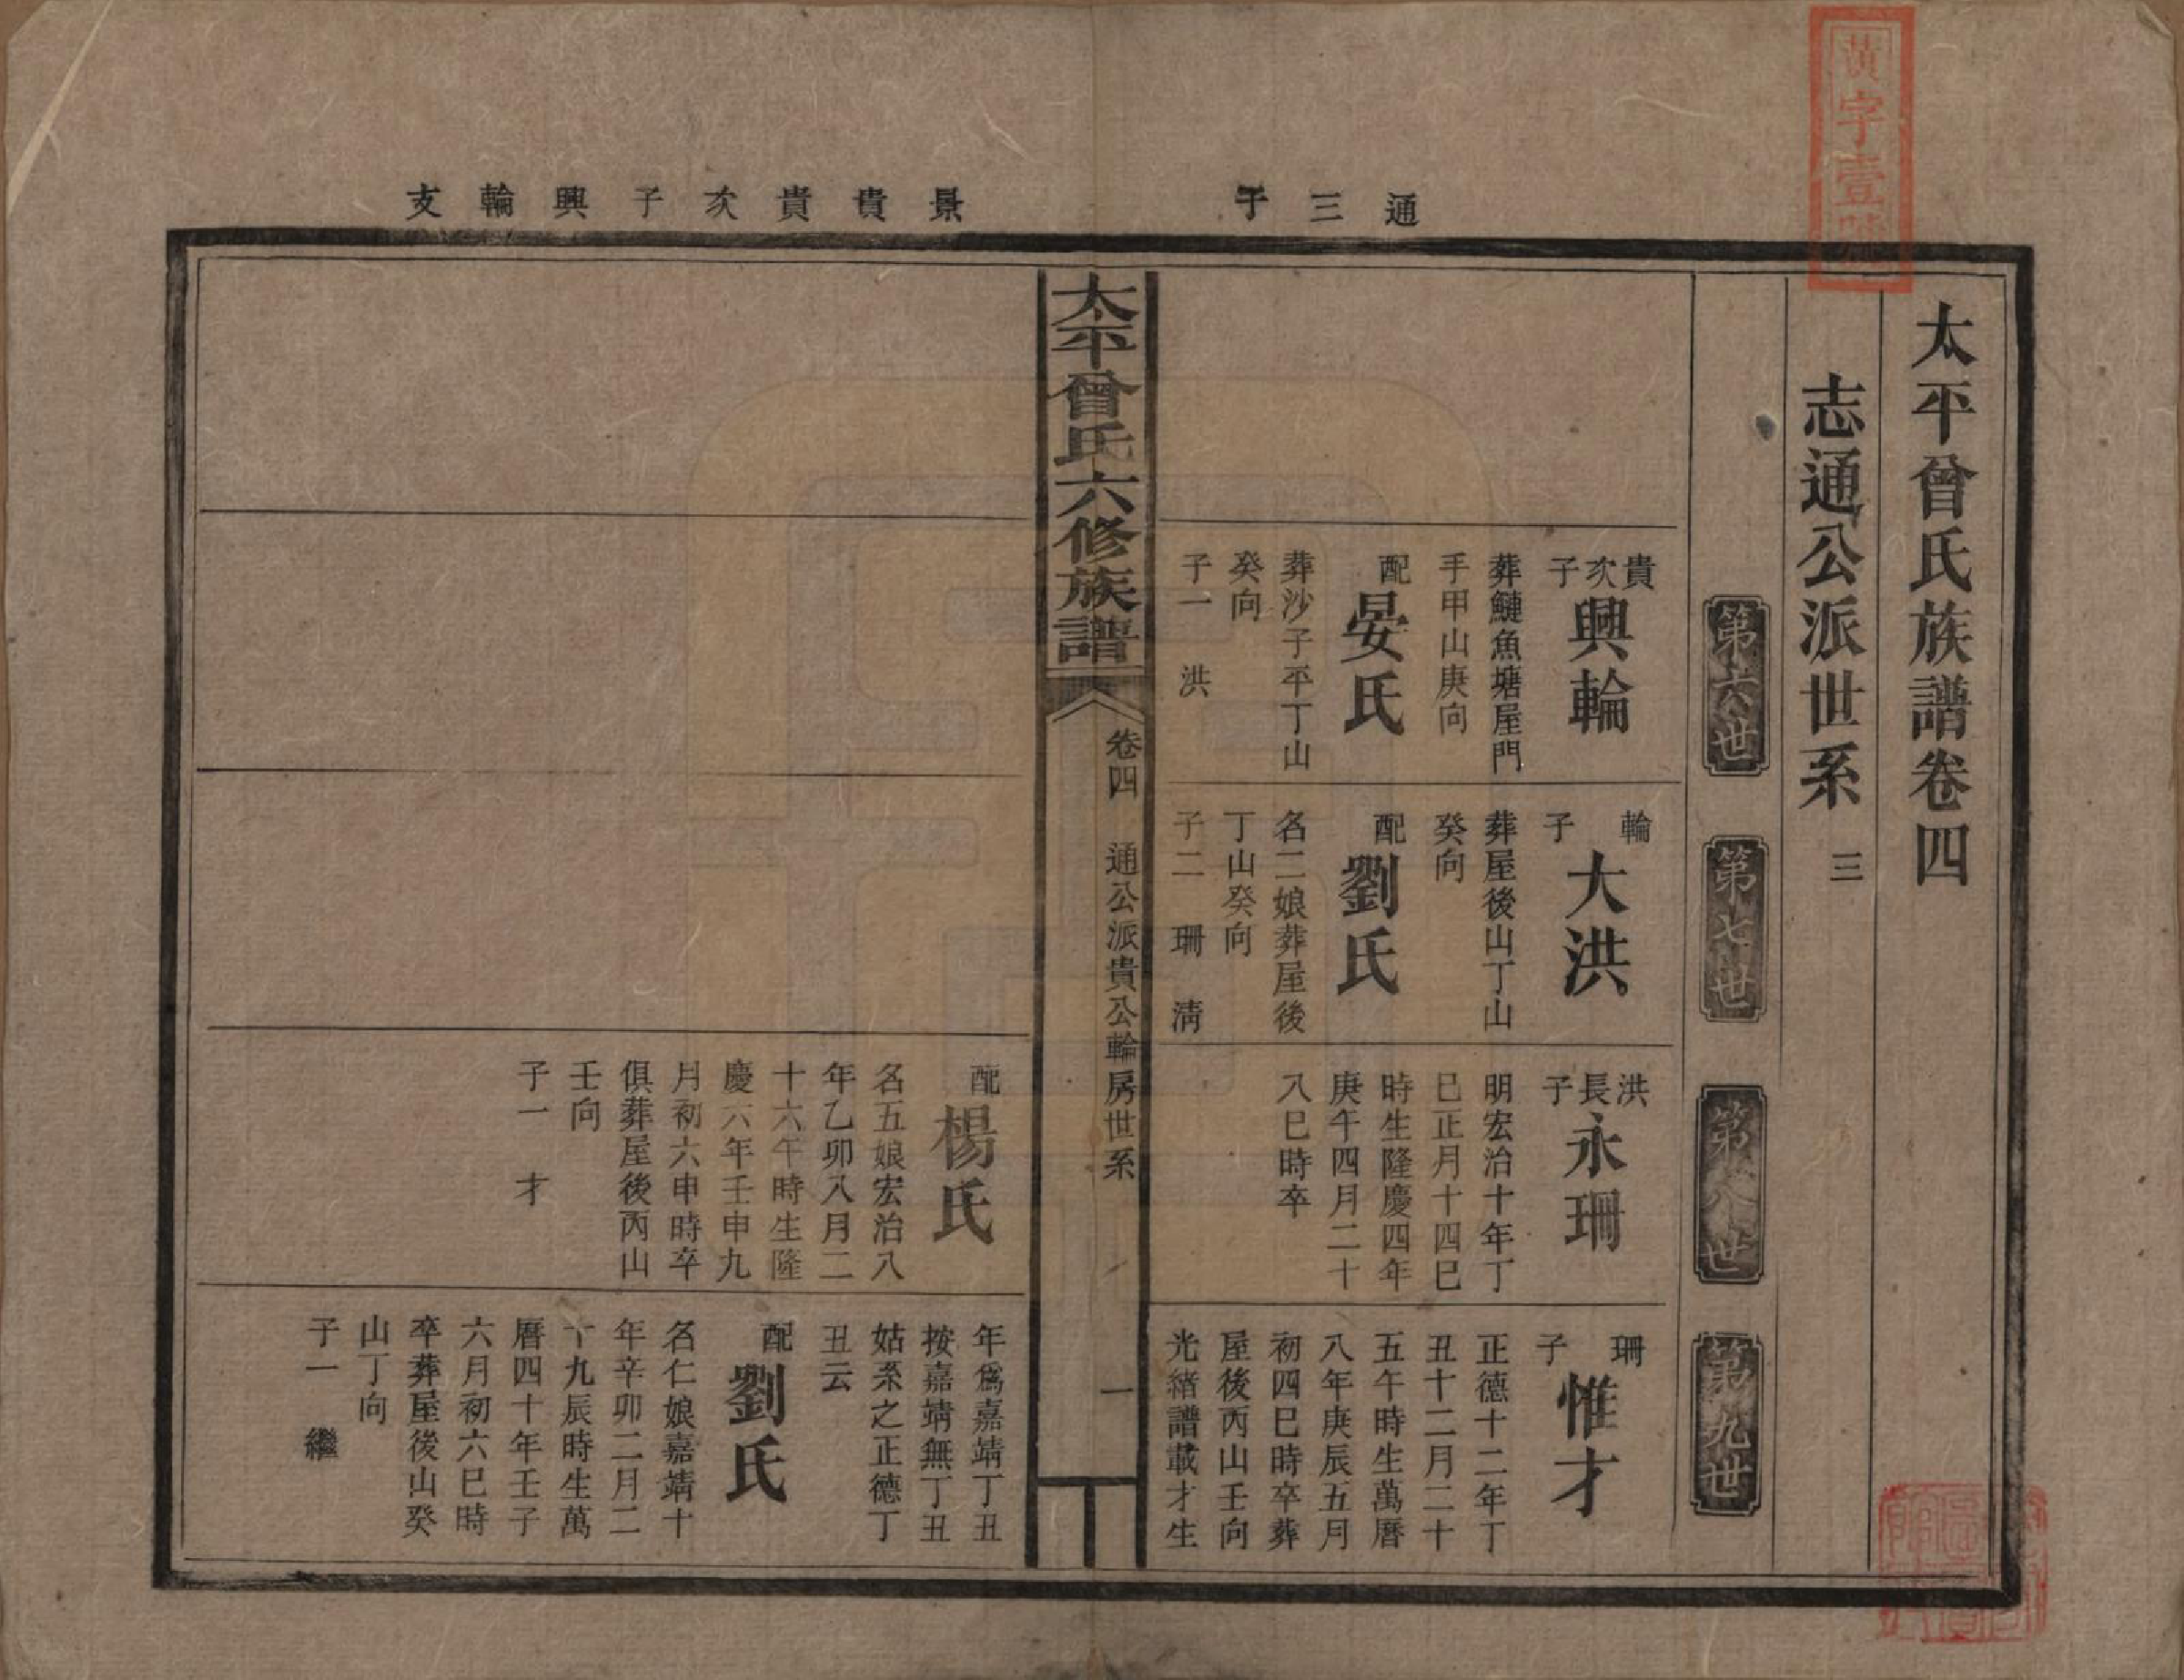 黃字壹號
通三子
景貴貴次子興輪支
太平曾氏族譜卷四
志通公派世系 三
第六世
第七世
第八世
第九世
貴次子
興輪
葬鰱魚塘屋門
手甲山庚向
配
晏氏
葬沙子平丁山
癸向
子一 洪
輪子
大洪
葬屋後山丁山
癸向
配
劉氏
名二娘葬屋後
丁山癸向
子二 珊 淸
洪長子
永珊
明宏治十年丁
巳正月十四巳
時生隆慶四年
庚午四月二十
八巳時卒
珊子
惟才
正德十二年丁
丑十二月二十
五午時生萬曆
八年庚辰五月
初四巳時卒葬
屋後丙山壬向
光緒譜載才生
太平曾氏六修族譜
卷四 通公派貴公輪房世系
一
配
楊氏
名五娘宏治八
年乙卯八月二
十六午時生隆
慶六年壬申九
月初六申時卒
俱葬屋後丙山
壬向
子一 才
年爲嘉靖丁丑
按嘉靖無丁丑
姑系之正德丁
丑云
配
劉氏
名仁娘嘉靖十
年辛卯二月二
十九辰時生萬
曆四十年壬子
六月初六巳時
卒葬屋後山癸
山丁向
子一 繼